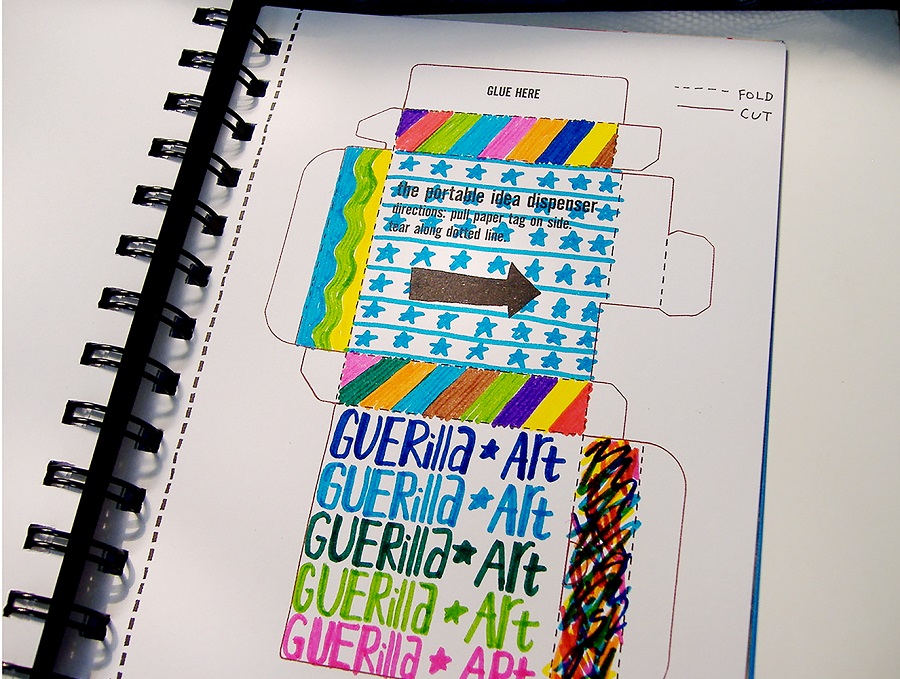 GLUE HERE
FOLD
CUT
the portable idea dispenser
directions: pull paper tag on side.
tear along dotted line.
GUERilla ★ Art
GUERilla ★ Art
GUERilla ★ Art
GUERilla ★ Art
GUERilla ★ Art